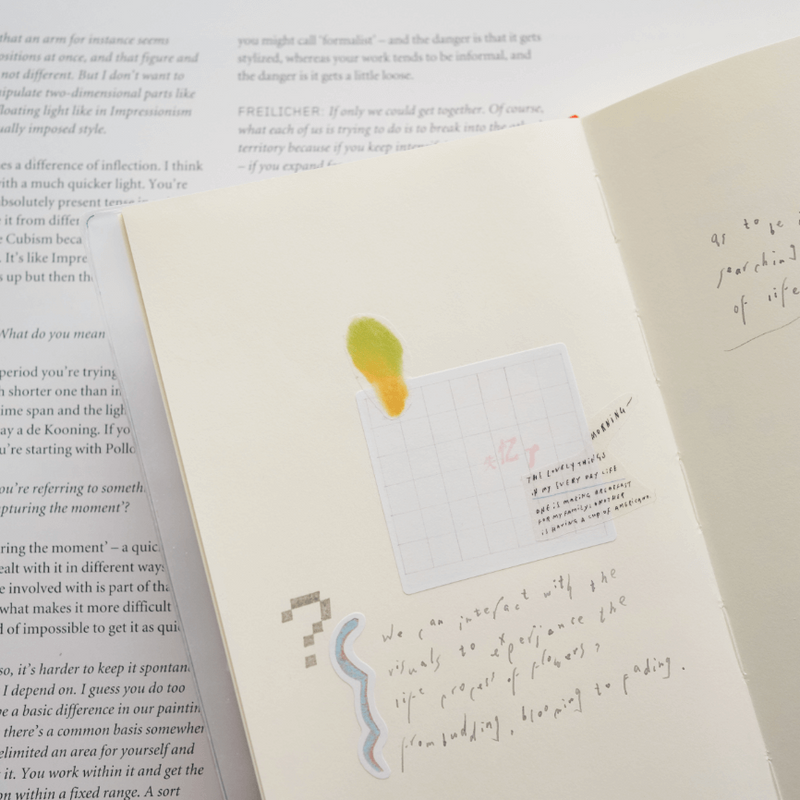 that an arm for instance seems
ositions at once, and that figure and
not different. But I don't want to
ipulate two-dimensional parts like
loating light like in Impressionism
ually imposed style.
es a difference of inflection. I think
ith a much quicker light. You're
bsolutely present tense in
it from differ
Cubism beca
. It's like Impre
s up but then th
What do you mean
period you're trying
h shorter one than in
ime span and the ligh
ay a de Kooning. If yo
u're starting with Pollo
ou're referring to someth
pturing the moment'?
ring the moment' – a quic
ealt with it in different way
e involved with is part of tha
what makes it more difficult
d of impossible to get it as qui
so, it's harder to keep it spontan
I depend on. I guess you do too
be a basic difference in our paintin
there's a common basis somewher
elimited an area for yourself and
it. You work within it and get the
on within a fixed range. A sort
you might call 'formalist' – and the danger is that it gets
stylized, whereas your work tends to be informal, and
the danger is it gets a little loose.
FREILICHER: If only we could get together. Of course,
what each of us is trying to do is to break into the
territory because if you keep
– if you expand
MORNING
THE LOVELY THINGS
IN MY EVERY DAY LIFE
ONE IS MAKING BREAKFAST
FOR MY FAMILY. ANOTHER
IS HAVING A CUP OF AMERICANO.
?
We can interact with the
visuals to experiance the
life process of flowers,
from budding, blooming to fading.
as to be
searching
of life